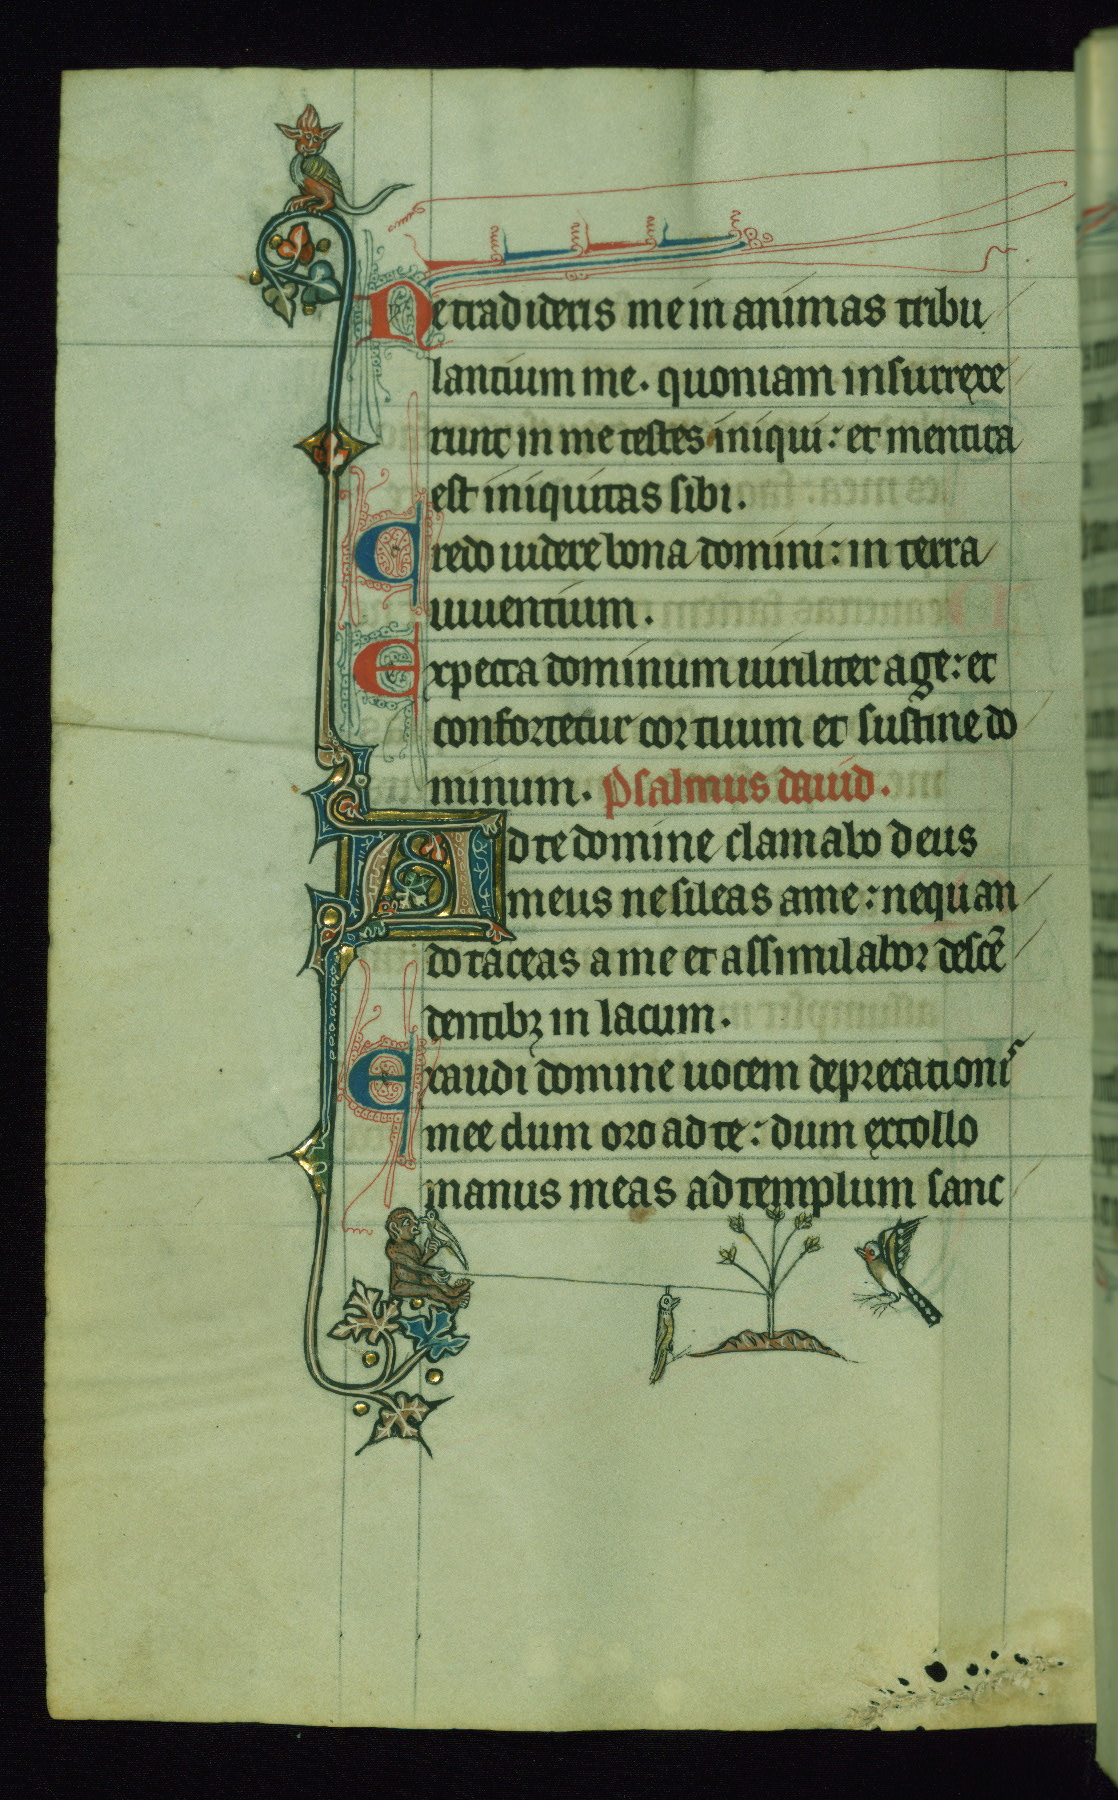 Ne tradideris me in animas tribu
lantium me. quoniam insurrexe
runt in me testes iniqui: et mentita
est iniquitas sibi.
Credo uidere bona domini: in terra
uiuentium.
Expecta dominum uiriliter age: et
confortetur cor tuum et sustine do
minum. Psalmus dauid.
Ad te domine clamabo deus
meus ne sileas a me: nequan
do taceas a me et assimilabor descē
dentibꝫ in lacum.
Exaudi domine uocem deprecationis
mee dum oro ad te: dum extollo
manus meas ad templum sanc